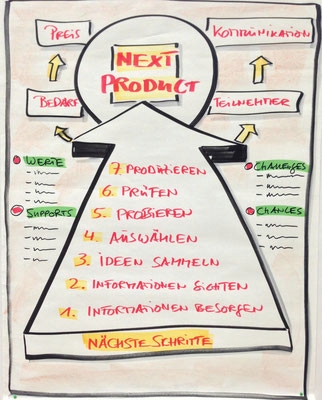 NEXT
PRODUCT
PREIS
BEDARF
KOMMUNIKATION
TEILNEHMER
WERTE
SUPPORTS
CHALLENGES
CHANCES
7. PRODUZIEREN
6. PRÜFEN
5. PROBIEREN
4. AUSWÄHLEN
3. IDEEN SAMMELN
2. INFORMATIONEN SICHTEN
1. INFORMATIONEN BESORGEN
NÄCHSTE SCHRITTE